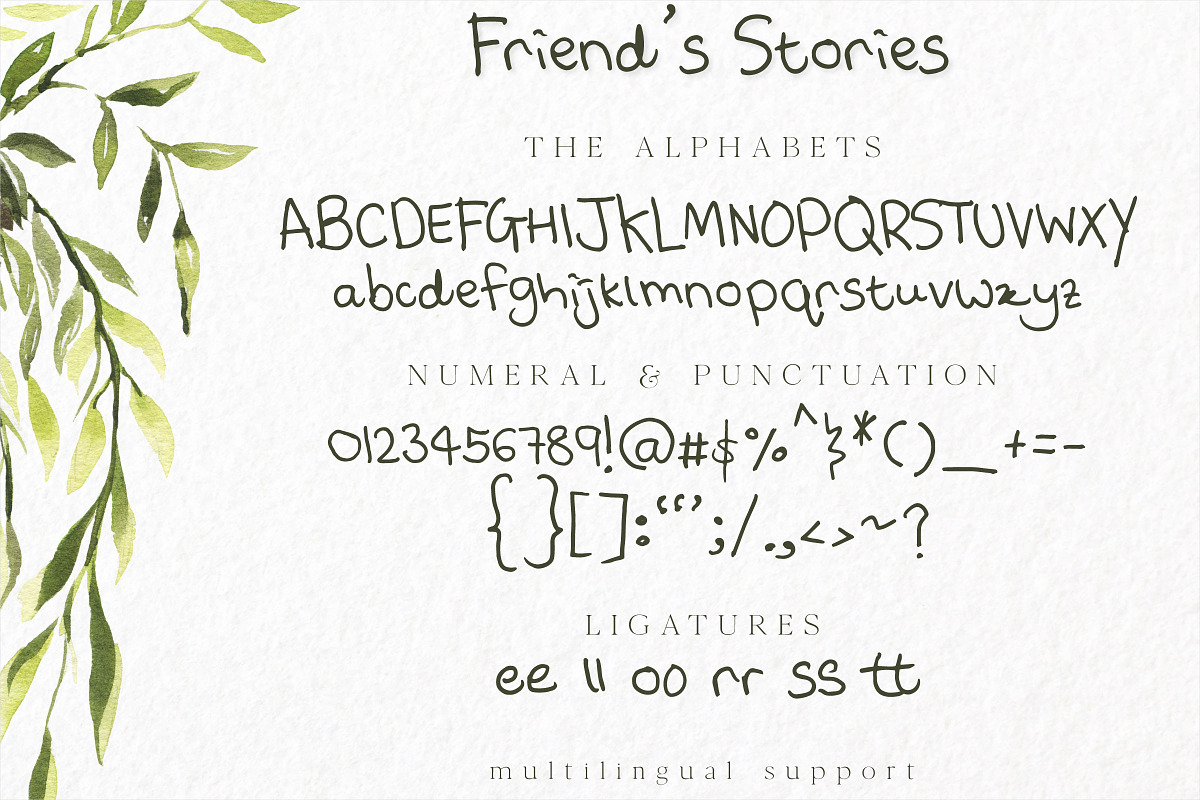 Friend's Stories
THE ALPHABETS
ABCDEFGHIJKLMNOPQRSTUVWXY
abcdefghijklmnopqrstuvwxyz
NUMERAL & PUNCTUATION
0123456789!@#$%^&*()_+=-
{}[]:“‘’;/.,<>~?
LIGATURES
ee ll oo rr ss tt
multilingual support